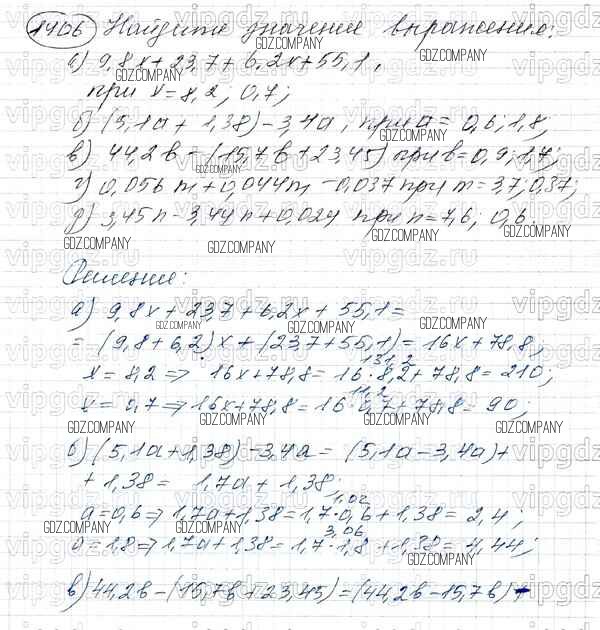 1406 Найдите значение выражения:
а) 9,8x + 23,7 + 6,2x + 55,1,
при x = 8,2; 0,7;
б) (5,1a + 1,38) - 3,4a, при a = 0,6; 1,8;
в) 44,2b - (15,7b + 23,45) при b = 0,9; 1,7;
г) 0,056m + 0,044m - 0,037 при m = 3,7; 0,37;
д) 3,45n - 3,44n + 0,024 при n = 7,6; 0,6.
Решение:
а) 9,8x + 23,7 + 6,2x + 55,1 =
= (9,8 + 6,2)x + (23,7 + 55,1) = 16x + 78,8;
131,2
x = 8,2 => 16x + 78,8 = 16 · 8,2 + 78,8 = 210;
11,2
x = 0,7 => 16x + 78,8 = 16 · 0,7 + 78,8 = 90;
б) (5,1a + 1,38) - 3,4a = (5,1a - 3,4a) +
+ 1,38 = 1,7a + 1,38;
1,02
a = 0,6 => 1,7a + 1,38 = 1,7 · 0,6 + 1,38 = 2,4;
3,06
a = 1,8 => 1,7a + 1,38 = 1,7 · 1,8 + 1,38 = 4,44;
в) 44,2b - (15,7b + 23,45) = (44,2b - 15,7b) +